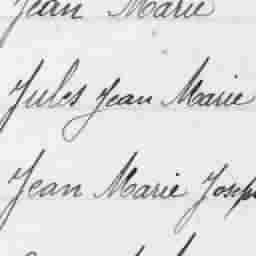 Jean Marie
Jules Jean Marie
Jean Marie Joseph